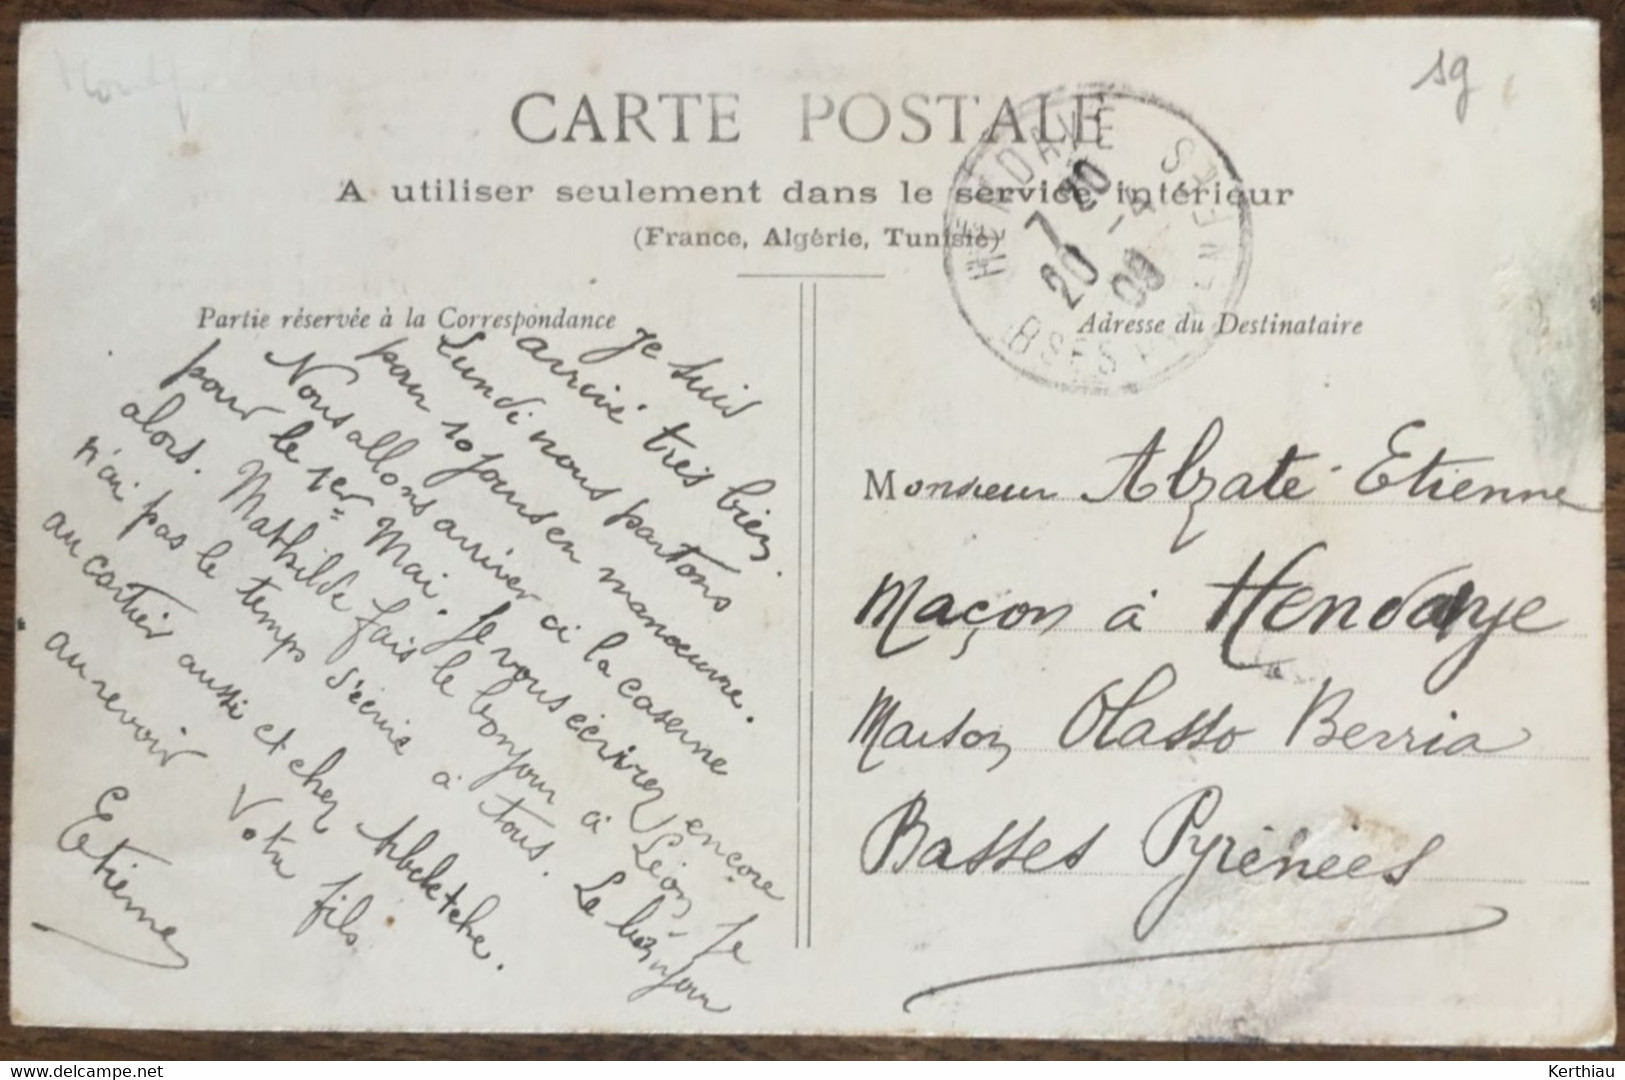 sg
CARTE POSTALE
A utiliser seulement dans le service intérieur
(France, Algérie, Tunisie)
HENDAYE
7 20
20 - 4
09
BSES PYRENEES
Partie réservée à la Correspondance
Adresse du Destinataire
Je suis
arrivé très bien.
Lundi nous partons
pour 10 jours en manoeuvre.
Nous allons arriver a la caserne
pour le 1er Mai. Je vous écrirez encore
alors. Mathilde fais le bonjour à Léon, Je
n'ai pas le temps d'écrire à tous. Le bonjour
au cartier aussi et chez Arbeletche.
au revoir Votre fils
Etienne
Monsieur Alzate Etienne
Maçon à Hendaye
Maison Olasso Berria
Basses Pyrénées
Kerthiau
delcampe.net